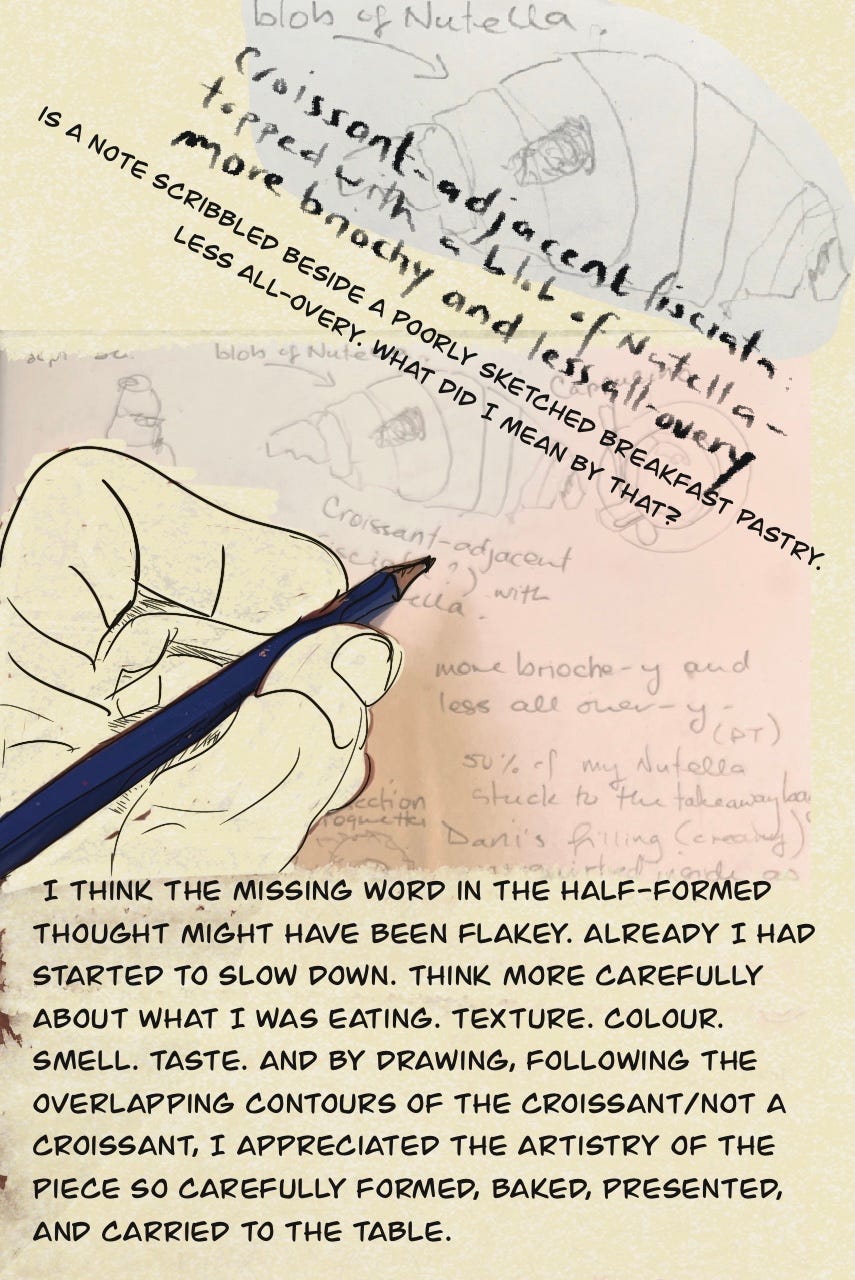 blob of Nutella.
Croissant-adjacent fisciata:
topped with a blob of Nutella -
more briochy and less all-overy
IS A NOTE SCRIBBLED BESIDE A POORLY SKETCHED BREAKFAST PASTRY.
LESS ALL-OVERY. WHAT DID I MEAN BY THAT?
blob of Nutella
Croissant-adjacent
(?) with
more brioche-y and
less all over-y -
(DT)
50% of my Nutella
stuck to the takeaway
Dani's filling (creamy)
as
I THINK THE MISSING WORD IN THE HALF-FORMED
THOUGHT MIGHT HAVE BEEN FLAKEY. ALREADY I HAD
STARTED TO SLOW DOWN. THINK MORE CAREFULLY
ABOUT WHAT I WAS EATING. TEXTURE. COLOUR.
SMELL. TASTE. AND BY DRAWING, FOLLOWING THE
OVERLAPPING CONTOURS OF THE CROISSANT/NOT A
CROISSANT, I APPRECIATED THE ARTISTRY OF THE
PIECE SO CAREFULLY FORMED, BAKED, PRESENTED,
AND CARRIED TO THE TABLE.